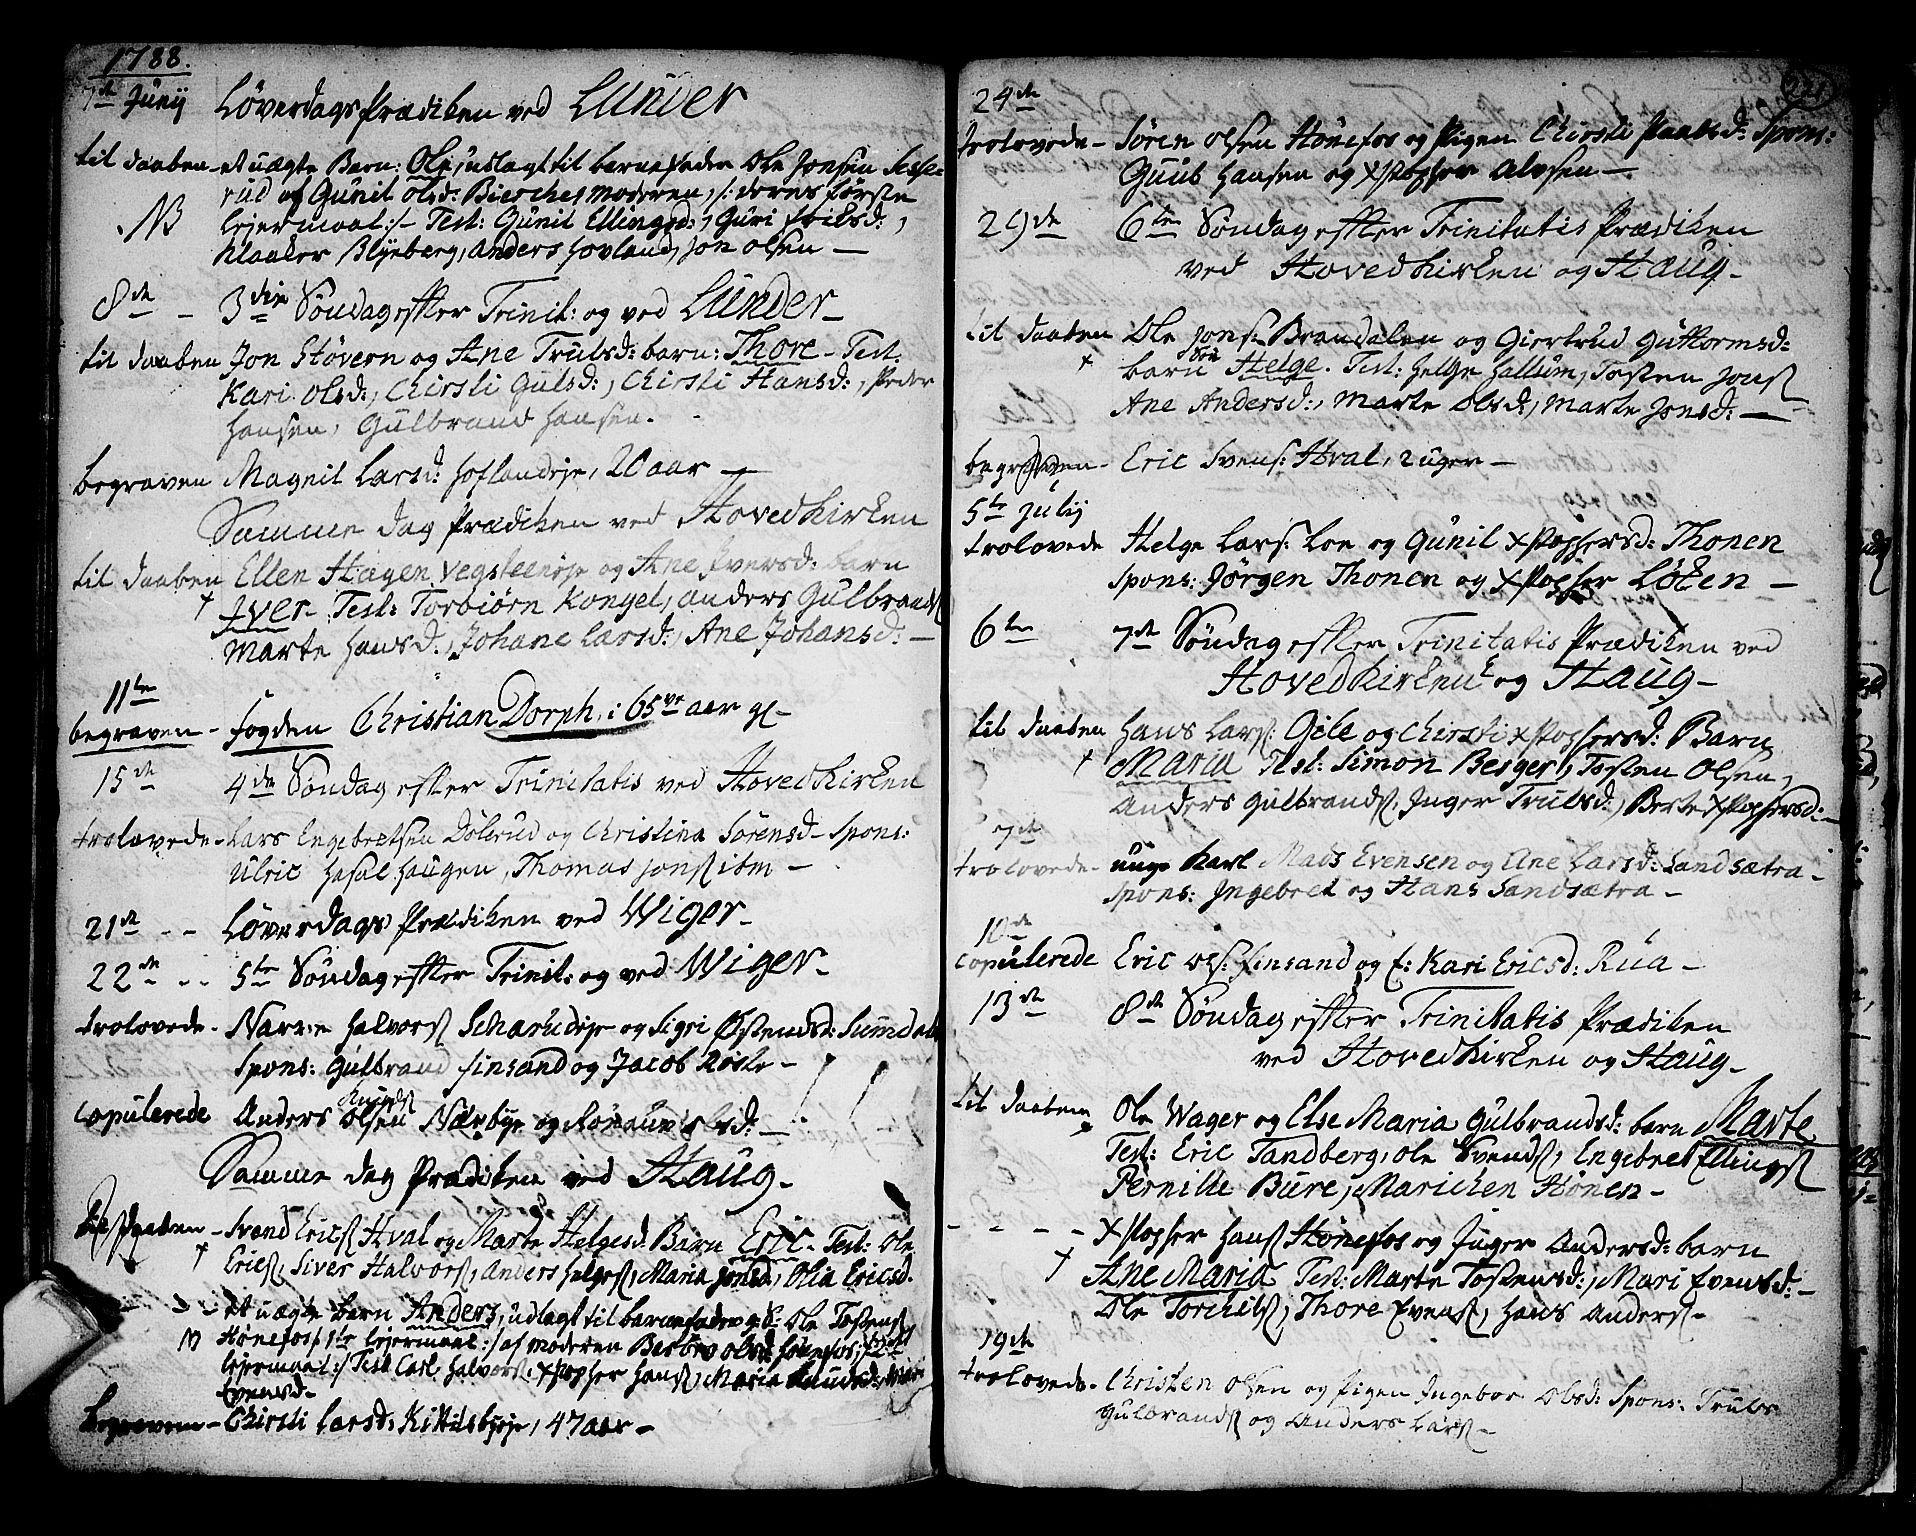 1788.
7de Junij Löverdags Prædiken ved Lunder
til daaben - et uægte Barn: Ole, udlagt til barnefader Ole Jonsen
rud og Gunil Olsd: Bierche moderen, /: deres første
NB Lejermaal :/ - Test: Gunil Ellingsd:, Guri Ericsd:,
Klaaker Blyeberg, Anders Hovland, Jon Olsen -
8de - 3die Söndag efter Trinit: og ved Lunder -
til daaben Jon Stövern og Ane Trulsd: barn: Thore - Test.
Kari Olsd:, Chirsti Gulsd:, Chirsti Hansd:, Peder
Hansen, Gulbrand Hansen.
begraven Magnil Larsd: Hoflandeje, 20 aar -
Samme dag Prædiken ved Hoved Kirken
til daaben Ellen Hagen Vegsteeneje og Ane Iversd: barn
† Iver. Test: Torbiörn Kongel, Anders Gulbrands
Marte Hansd:, Johane Larsd:, Ane Johansd: -
11te
begraven - Fogden Christian Dorph, i 65ve aar gl -
15de 4de Söndag efter Trinitatis ved Hoved Kirken
trolovede - Lars Engebretsen Dölerud og Christina Sörensd - Spons:
Ulric Hasselhaugen, Thomas Jons ibm -
21de - - Löverdags Prædiken ved Wiger -
22de - - 5te Söndag efter Trinit: og ved Wiger -
trolovede - Narve Halvors Scharudeje og Sigri Östensd: Sumdal
Spons: Gulbrand Finsand og Jacob -
copulerede Anders Knuds Olsen Nærbye og Olsd: -
Samme dag Prædiken ved Haug -
Til Daaben - Svend Erics Hval og Marte Helgesd: Barn Eric - Test: Ole
† Erics, Siver Halvors, Anders Helges, Maria Jonsd, Olia Ericsd.
- - et uægte barn Anders, udlagt til barnefader g: E: Ole Tostens
N Hönefos /: 1te Lejermaal :/ af moderen Barbro Olsd: Hönefos, /: 2det
Lejermaal :/ Test Carl Halvors, Xstopher Hans, Maria Knudsd:,
Evensd -
Begraven - Chirsti Larsd: Kittilsbyeje, 47 aar -
221
24de
trolovede - Sören Olsen Hönefos og Pigen Chirsti Paalsd: Spons:
Guub Hansen og Xstopher Alvsen -
29de 6te Söndag efter Trinitatis Prædiken
ved Hoved Kirken og Haug -
til daaben Ole Jons: Brandalen og Giertrud Guttormsd:
† barn Helge. Test: Helge Hallum, Tosten Jons
Ane Andersd:, Marte Olsd:, Marte Jonsd: -
begraven - Eric Svens: Hval, 2 uger -
5te Julij
trolovede Helge Lars: Loe og Gunil Xstophersd: Thonen
Spons: Jörgen Thonen og Xstopher Löken -
6te 7de Söndag efter Trinitatis Prædiken ved
Hoved Kirken og Haug -
til daaben Hans Lars: Gile og Chirsti Xstophersd: Barn
† Maria Test: Simon Berger, Tosten Olsen,
Anders Gulbrands, Inger Trulsd:, Berte Xstophersd: -
7de
trolovede - unge Karl Mads Evensen og Ane Larsd: Sandsætra -
Spons: Ingebret og Hans Sandsætra -
10de
copulerede Eric Ols: Finsand og f: Kari Ericsd: Rua -
13de 8de Söndag efter Trinitatis Prædiken
ved Hoved Kirken og Haug -
til daaben Ole Wager og Else Maria Gulbrandsd: barn Marte
Test: Eric Tandberg, Ole Svends, Engebret Ellings
Pernille Bure, Marichen Hönen -
- - - - Xstopher Hans Hönefos og Inger Andersd: barn
† Ane Maria Test: Marte Tostensd:, Mari Evensd: -
Ole Torchils, Thore Evens, Hans Anders -
19de
trolovede - Christen Olsen og Pigen Ingebor Olsd: Spons: Truls
Gulbrands og Anders Lars -